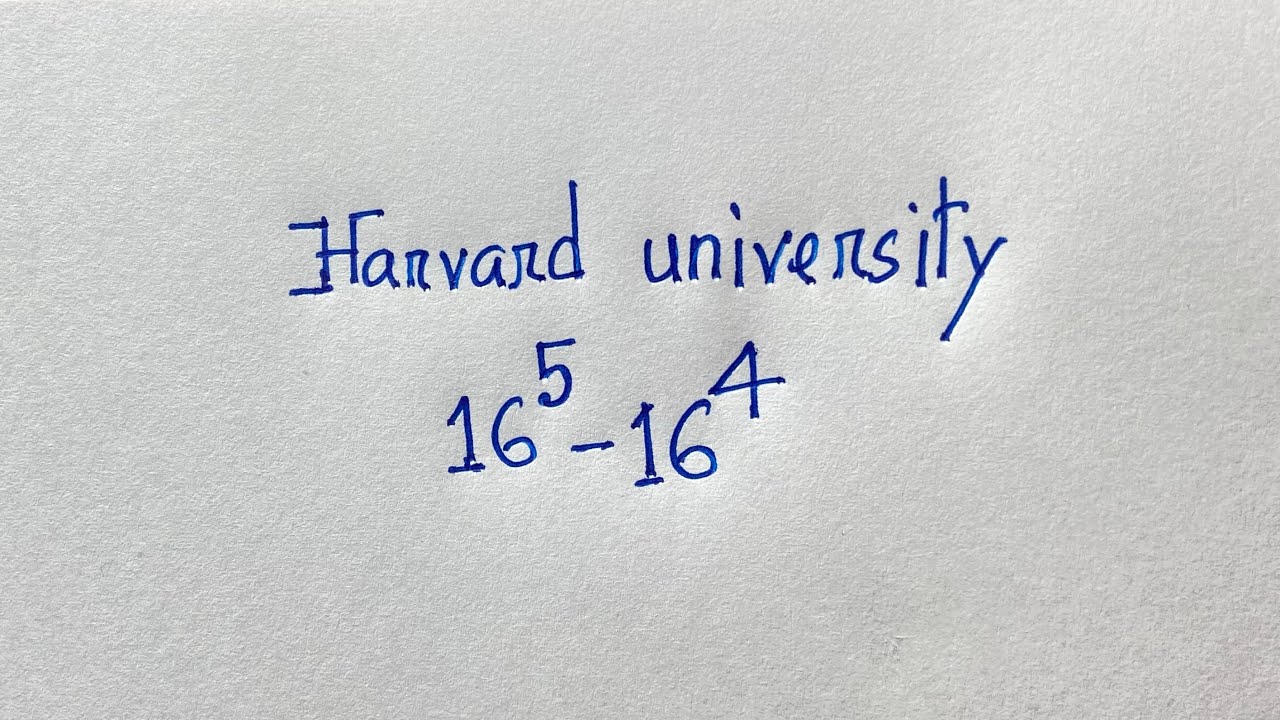 Harvard university
16⁵-16⁴